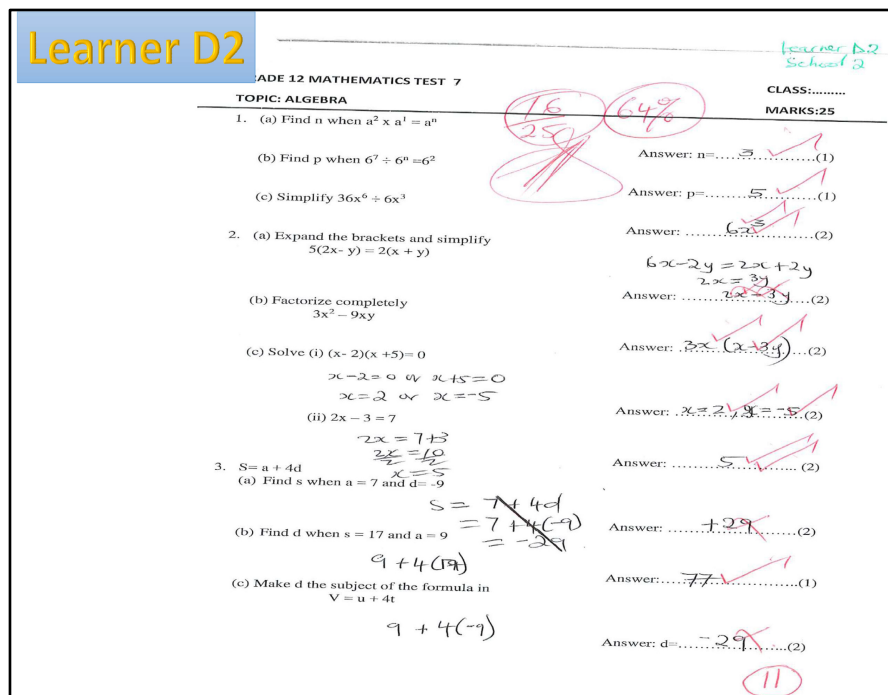 Learner D2
Learner D2
School 2
ADE 12 MATHEMATICS TEST 7
CLASS:.........
TOPIC: ALGEBRA
MARKS:25
16
25
64%
1. (a) Find n when a² x a¹ = aⁿ
Answer: n=....3..............(1)
(b) Find p when 6⁷ ÷ 6ⁿ =6²
Answer: p=.......5..........(1)
(c) Simplify 36x⁶ ÷ 6x³
Answer: ......6x³..............(2)
2. (a) Expand the brackets and simplify
5(2x- y) = 2(x + y)
6x-2y = 2x+2y
2x = 3y
Answer: ........2x = 3y..(2)
(b) Factorize completely
3x² – 9xy
Answer: .3x (x-3y)..(2)
(c) Solve (i) (x- 2)(x +5)= 0
x-2=0 or x+5=0
x=2 or x=-5
Answer: ...x=2, x=-5(2)
(ii) 2x – 3 = 7
2x = 7+3
2x = 10
2 2
x = 5
Answer: ......5............ (2)
3. S= a + 4d
(a) Find s when a = 7 and d= -9
S = 7 + 4d
= 7 + 4(-9)
= -29
Answer: .......+29........(2)
(b) Find d when s = 17 and a = 9
Answer:....77...............(1)
(c) Make d the subject of the formula in
V = u + 4t
9 + 4(-9)
Answer: d=....-29........(2)
11